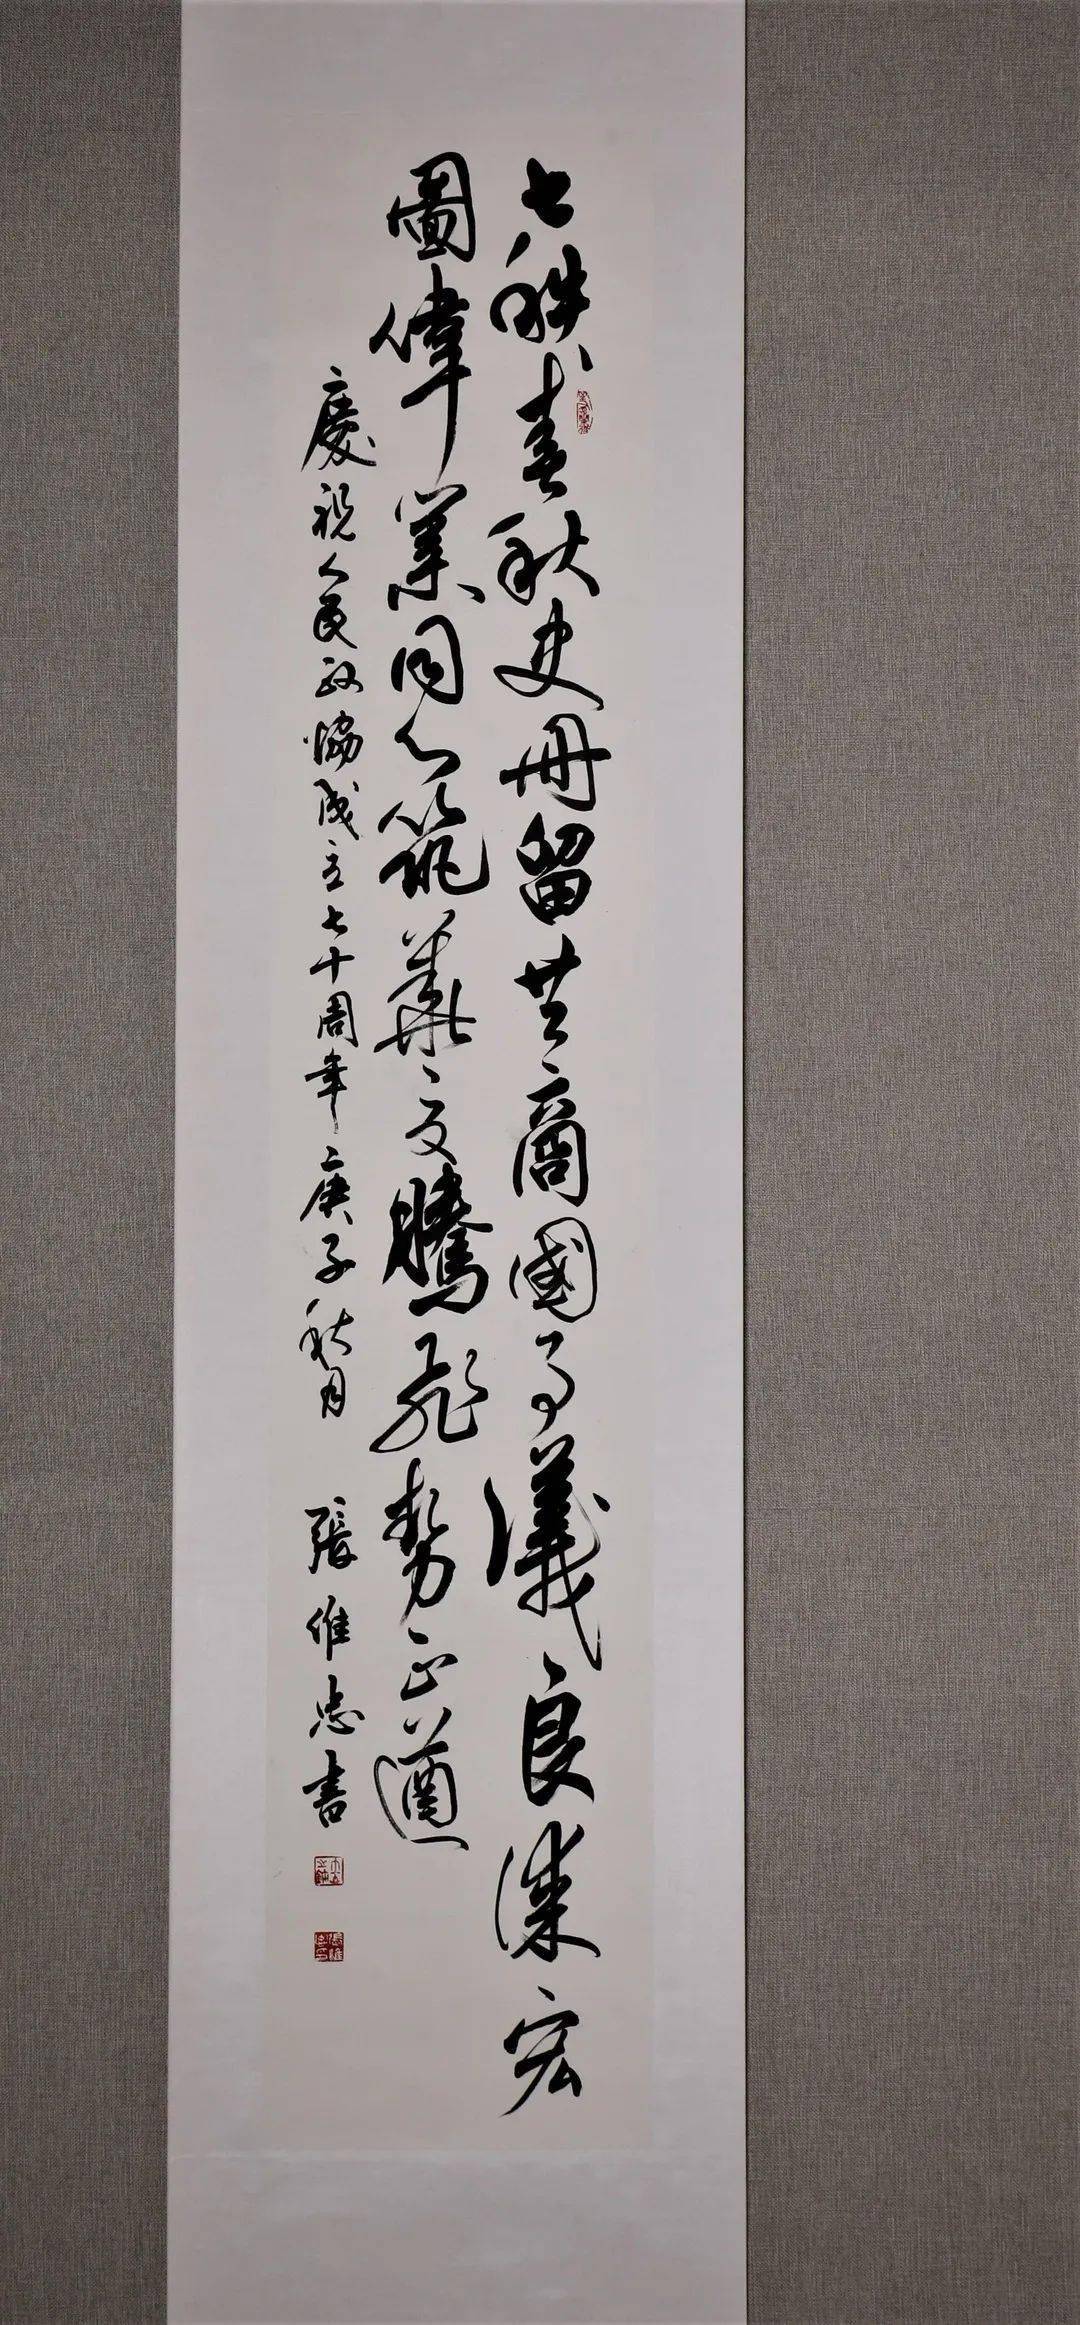 七秩春秋史册留共商國事議良谋宏
圖偉業同心筑華夏騰飛勢正遒
慶祝人民政協成立七十周年庚子秋月 張維忠書